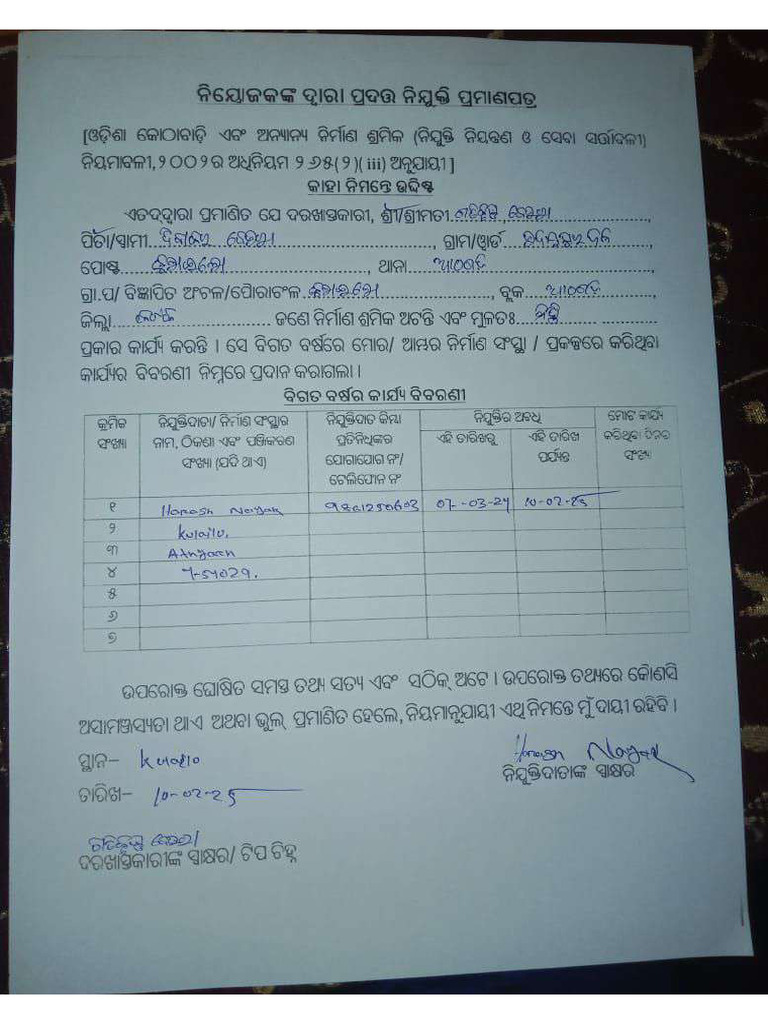 ନିୟୋଜକଙ୍କ ଦ୍ୱାରା ପ୍ରଦତ୍ତ ନିଯୁକ୍ତି ପ୍ରମାଣପତ୍ର
[ଓଡ଼ିଶା କୋଠାବାଡ଼ି ଏବଂ ଅନ୍ୟାନ୍ୟ ନିର୍ମାଣ ଶ୍ରମିକ (ନିଯୁକ୍ତି ନିୟନ୍ତ୍ରଣ ଓ ସେବା ସର୍ତ୍ତାବଳୀ)
ନିୟମାବଳୀ,୨୦୦୨ର ଅଧିନିୟମ ୨୬୫(୨)(iii) ଅନୁଯାୟୀ]
କାହା ନିମନ୍ତେ ଉଦ୍ଦିଷ୍ଟ
ଏତଦ୍‌ଦ୍ୱାରା ପ୍ରମାଣିତ ଯେ ଦରଖାସ୍ତକାରୀ, ଶ୍ରୀ/ଶ୍ରୀମତୀ ବେହେରା,
ପିତା/ସ୍ୱାମୀ ବେହେରା, ଗ୍ରାମ/ୱାର୍ଡ
ପୋଷ୍ଟ କୁଲାଇଲୋ, ଥାନା ଆଠଗଡ,
ଗ୍ରା.ପ/ ବିଜ୍ଞାପିତ ଅଂଚଳ/ପୌରାଚଂଳ କୁଲାଇଲୋ, ବ୍ଲକ ଆଠଗଡ,
ଜିଲ୍ଲା କଟକ ଜଣେ ନିର୍ମାଣ ଶ୍ରମିକ ଅଟନ୍ତି ଏବଂ ମୂଳତଃ ମିସ୍ତ୍ରି
ପ୍ରକାର କାର୍ଯ୍ୟ କରନ୍ତି । ସେ ବିଗତ ବର୍ଷରେ ମୋର/ ଆମ୍ଭର ନିର୍ମାଣ ସଂସ୍ଥା / ପ୍ରକଳ୍ପରେ କରିଥିବା
କାର୍ଯ୍ୟର ବିବରଣୀ ନିମ୍ନରେ ପ୍ରଦାନ କରାଗଲା ।
ବିଗତ ବର୍ଷର କାର୍ଯ୍ୟ ବିବରଣୀ
କ୍ରମିକ ସଂଖ୍ୟା ନିଯୁକ୍ତିଦାତା/ ନିର୍ମାଣ ସଂସ୍ଥାର ନାମ, ଠିକଣା ଏବଂ ପଞ୍ଜିକରଣ ସଂଖ୍ୟା (ଯଦି ଥାଏ) ନିଯୁକ୍ତିଦାତ କିମ୍ବା ପ୍ରତିନିଧିକର ଯୋଗାଯୋଗ ନଂ/ ଟେଲିଫୋନ ନଂ ନିଯୁକ୍ତିର ଅବଧି ଏହି ତାରିଖରୁ ଏହି ତାରିଖ ପର୍ଯ୍ୟନ୍ତ ମୋଟ କାର୍ଯ୍ୟ କରିଥିବା ଦିନର ସଂଖ୍ୟା
୧ Nayak 07-03-24 10-02-25
୨ Kulailo.
୩
୪ 754029.
୫
୬
୭
ଉପରୋକ୍ତ ଘୋଷିତ ସମସ୍ତ ତଥ୍ୟ ସତ୍ୟ ଏବଂ ସଠିକ୍ ଅଟେ । ଉପରୋକ୍ତ ତଥ୍ୟରେ କୌଣସି
ଅସାମଞ୍ଜସ୍ୟତା ଥାଏ ଅଥବା ଭୁଲ୍ ପ୍ରମାଣିତ ହେଲେ, ନିୟମାନୁଯାୟୀ ଏଥିନିମନ୍ତେ ମୁଁ ଦାୟୀ ରହିବି ।
ସ୍ଥାନ– Kulailo
Nayak
ନିଯୁକ୍ତିଦାତାଙ୍କ ସ୍ୱାକ୍ଷର
ତାରିଖ– 10-02-25
ବେହେରା
ଦରଖାସ୍ତକାରୀଙ୍କ ସ୍ୱାକ୍ଷର/ ଟିପ ଚିହ୍ନ